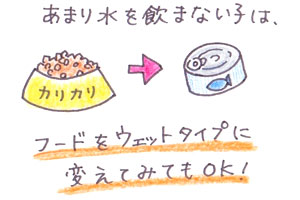 あまり水を飲まない子は、
カリカリ
フードをウェットタイプに
変えてみてもOK!